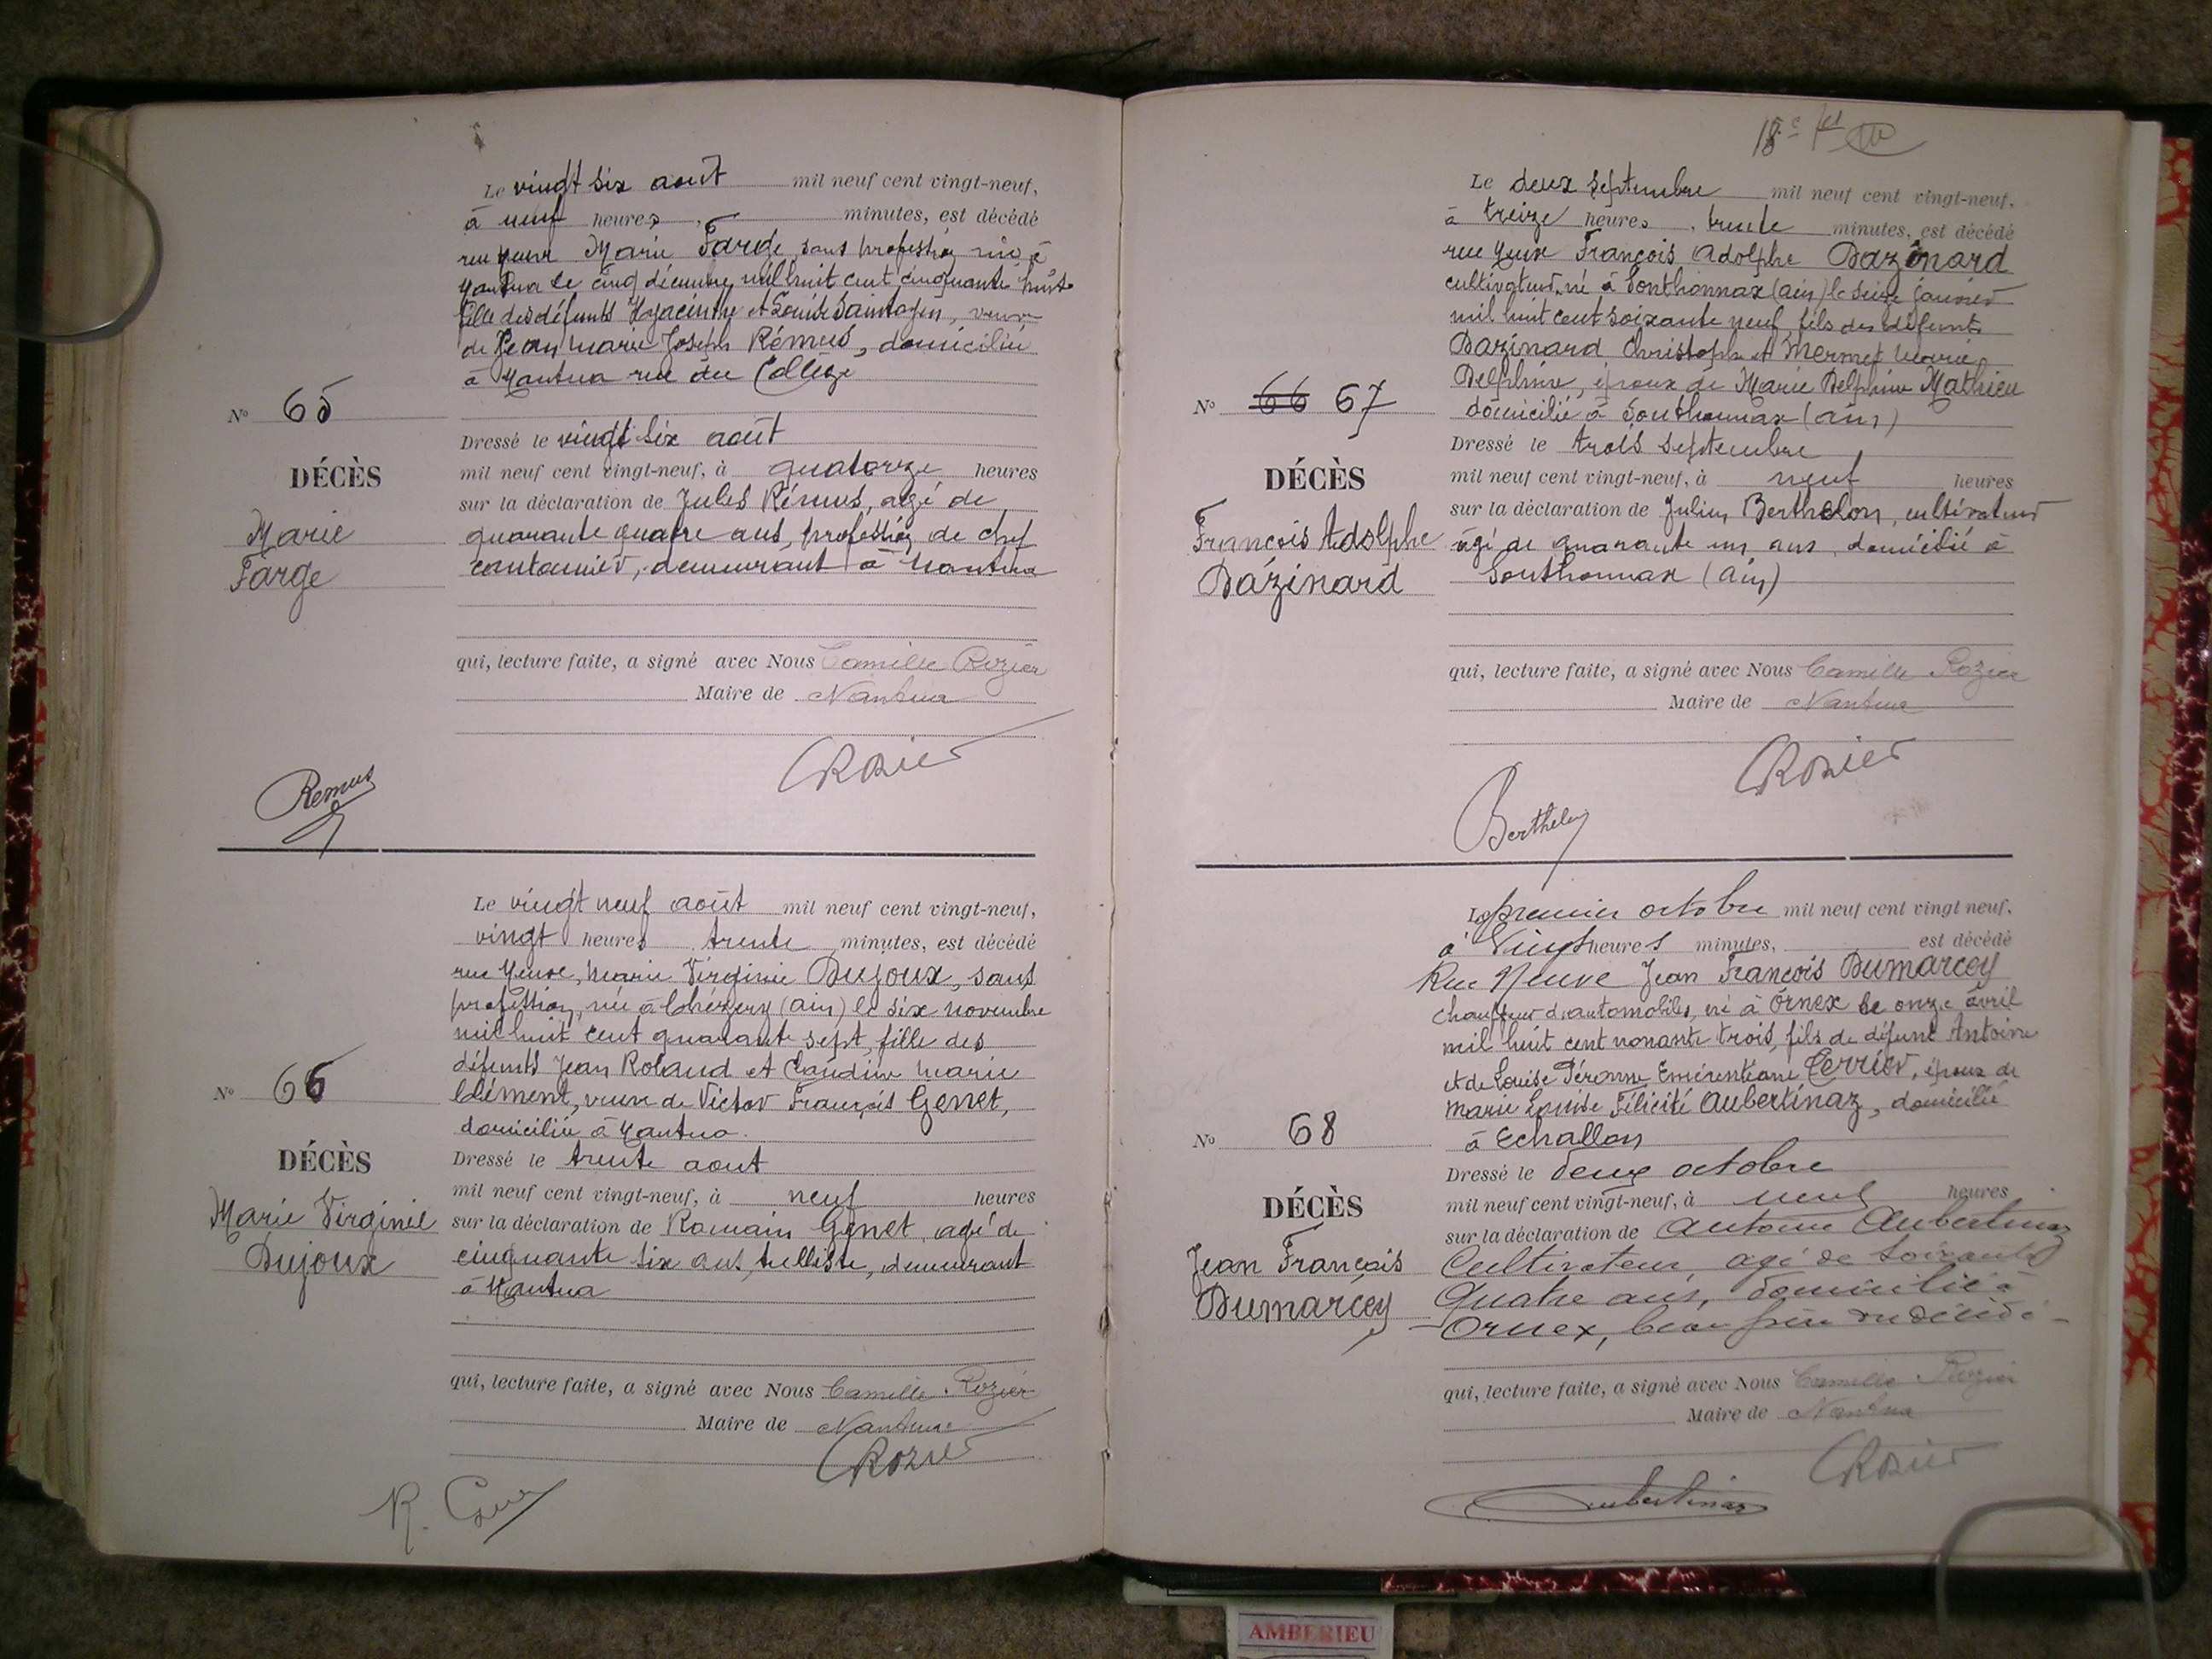 Le vingt six août mil neuf cent vingt-neuf,
à neuf heures, minutes, est décédé
rue Neuve Marie Farge, sans profession, née à
Nantua le cinq décembre mil huit cent cinquante huit
fille des défunts Hyacinthe et Louise Saintoyen, veuve
de Jean Marie Joseph Rémus, domiciliée
à Nantua rue du Collège
N° 65
DÉCÈS
Marie
Farge
Dressé le vingt six août
mil neuf cent vingt-neuf, à quatorze heures
sur la déclaration de Jules Rémus, agé de
quarante quatre ans, profession de chef
cantonnier, demeurant à Nantua
qui, lecture faite, a signé avec Nous Camille Rozier
Maire de Nantua
CRozier
Remus
Le vingt neuf août mil neuf cent vingt-neuf,
vingt heures trente minutes, est décédé
rue Neuve, Marie Virginie Dujoux, sans
profession, née à Chézery (ain) le six novembre
mil huit cent quarante sept, fille des
défunts Jean Roland et Claudine Marie
Clément, veuve de Victor François Genet,
domiciliée à Nantua.
N° 66
DÉCÈS
Marie Virginie
Dujoux
Dressé le trente aout
mil neuf cent vingt-neuf, à neuf heures
sur la déclaration de Romain Genet, agé de
cinquante six ans, tulliste, demeurant
à Nantua
qui, lecture faite, a signé avec Nous Camille Rozier
Maire de Nantua
CRozier
R.
18e
Le deux septembre mil neuf cent vingt-neuf,
à treize heures, trente minutes, est décédé
rue Neuve François Adolphe Dazinard
cultivateur, né à Sonthonnax (ain) le seize janvier
mil huit cent soixante neuf, fils des défunts
Dazinard Christophe et Mermet Marie
Delphine, époux de Marie Delphine Mathieu
domicilié à Sonthonnax (ain)
N° 66 67
DÉCÈS
François Adolphe
Dazinard
Dressé le trois septembre
mil neuf cent vingt-neuf, à neuf heures
sur la déclaration de Julien Berthelon, cultivateur
âgé de quarante un ans, domicilié à
Sonthonnax (ain)
qui, lecture faite, a signé avec Nous Camille Rozier
Maire de Nantua
CRozier
Berthelon
Le premier octobre mil neuf cent vingt neuf,
à Vingt heures minutes, est décédé
Rue Neuve Jean François Dumarcey
chauffeur d'automobiles, né à Ornex le onze avril
mil huit cent nonante trois, fils de défunt Antoine
et de Louise Péronne Emérentiane Perrier, époux de
Marie Louise Félicité Aubertinaz, domicilié
à Echallon
N° 68
DÉCÈS
Jean François
Dumarcey
Dressé le deux octobre
mil neuf cent vingt-neuf, à neuf heures
sur la déclaration de Antoine Aubertinaz
Cultivateur, agé de soixante
Quatre ans, domicilié à
Ornex, beau frère du décédé
qui, lecture faite, a signé avec Nous Camille Rozier
Maire de Nantua
CRozier
Aubertinaz
AMBERIEU